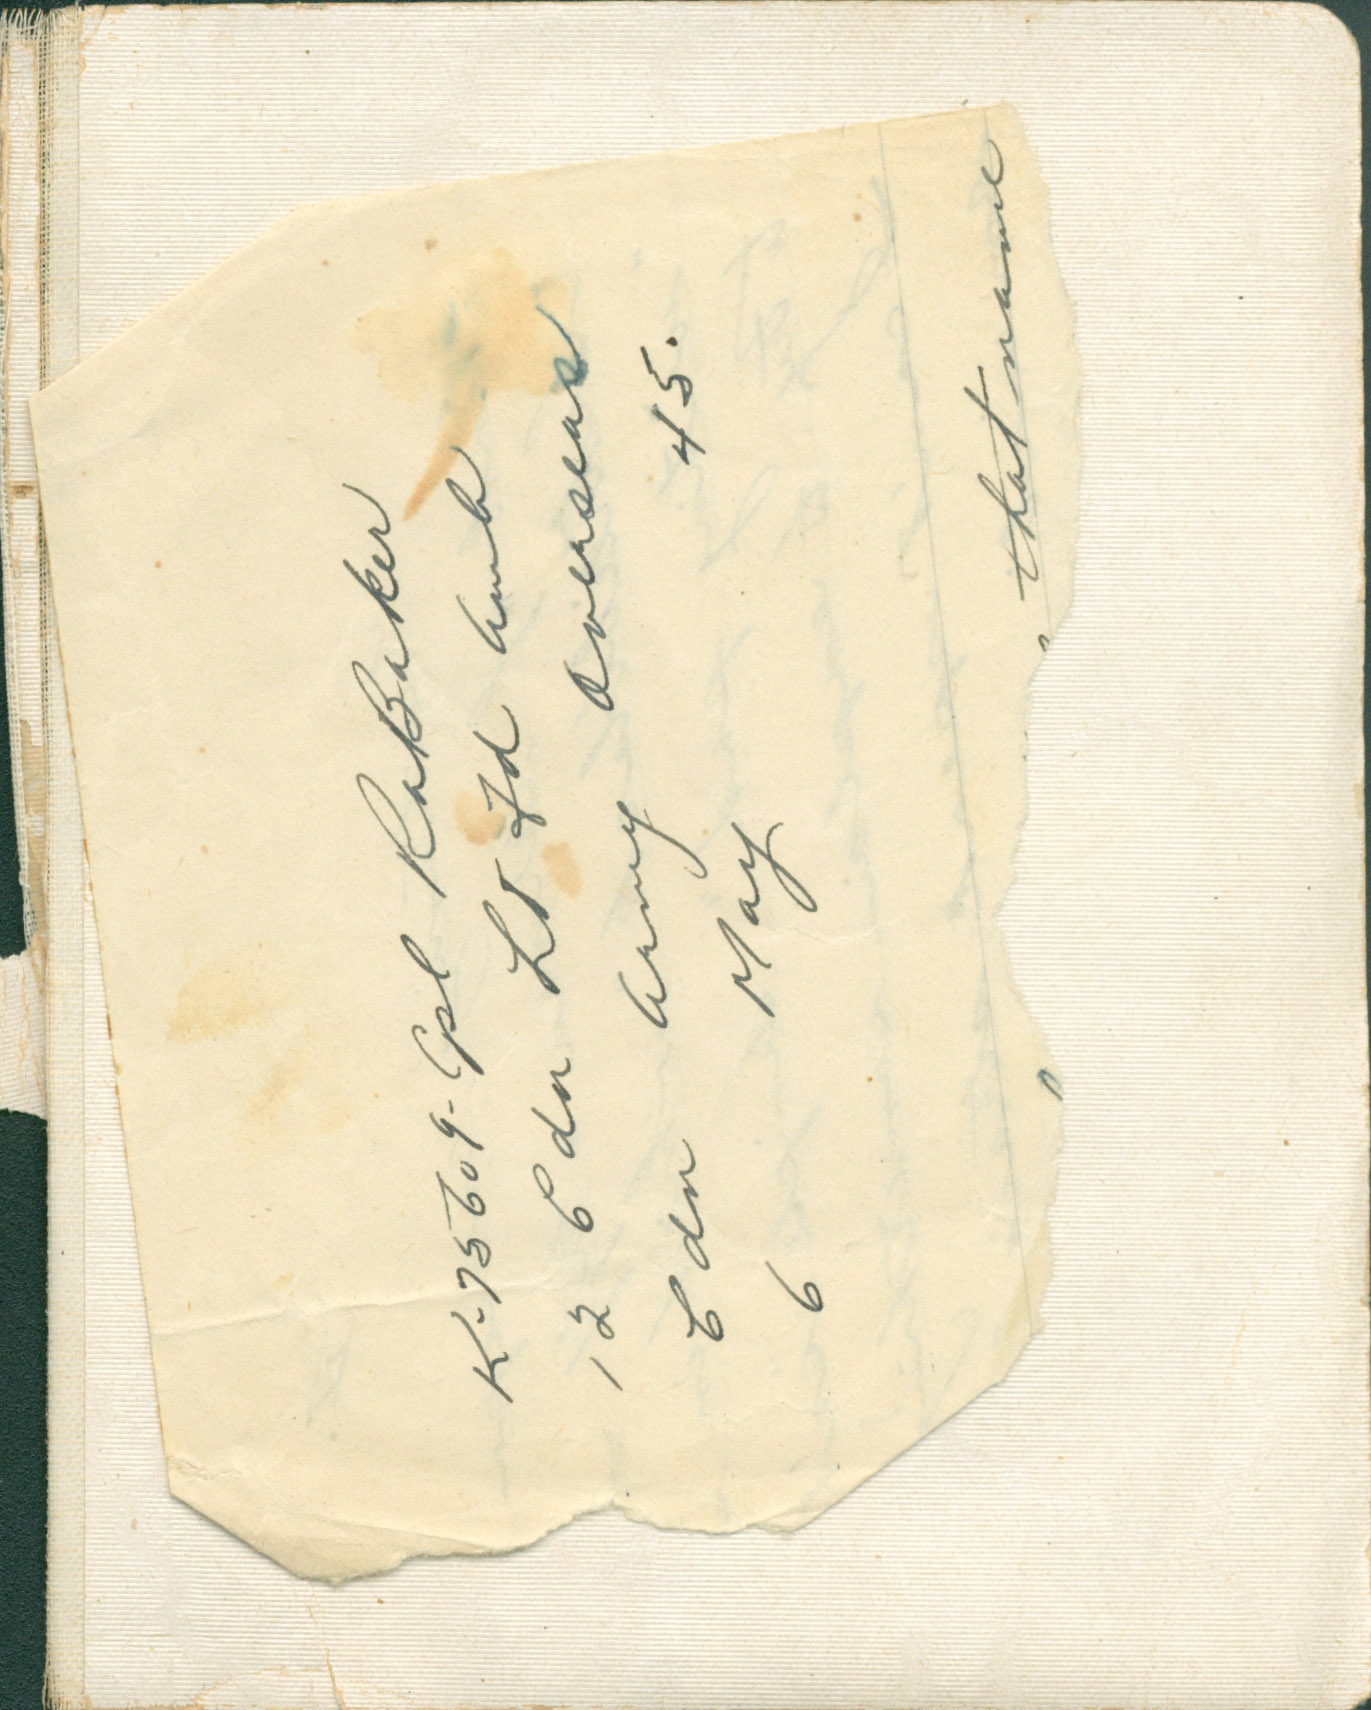 K-75609-Cpl RaBaker
12 Cdn Lt Fd Amb
Cdn Army Overseas
6 May 45.
that name